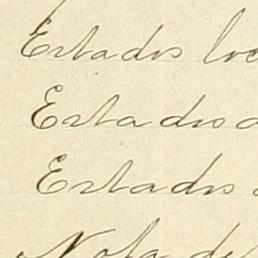 Estados
Estados
Estados
Nota de